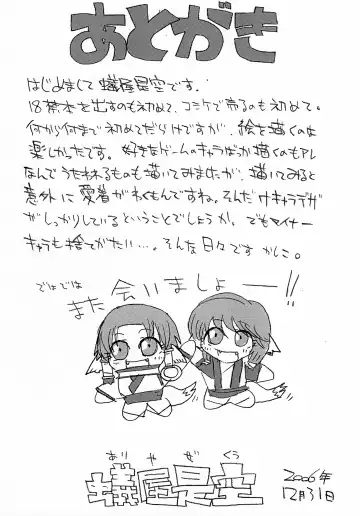 あとがき
はじめまして 蟻屋星空です。
18禁本を出すのも初めて、コミケで売るのも初めて。
何から何まで初めてだらけですが、絵を描くのは
楽しかったです。好きなゲームのキャラばっか描くのもアレ
なんでうたわれるものも描いてみましたが、描いてみると
意外に愛着がわくもんですね。そんだけキャラデザ
がしっかりしているということでしょうか。でもマイナー
キャラも捨てがたい…。そんな日々です かしこ。
ではでは
また 会いましょー!!
ありやぜくう
蟻屋是空
2006年
12月31日